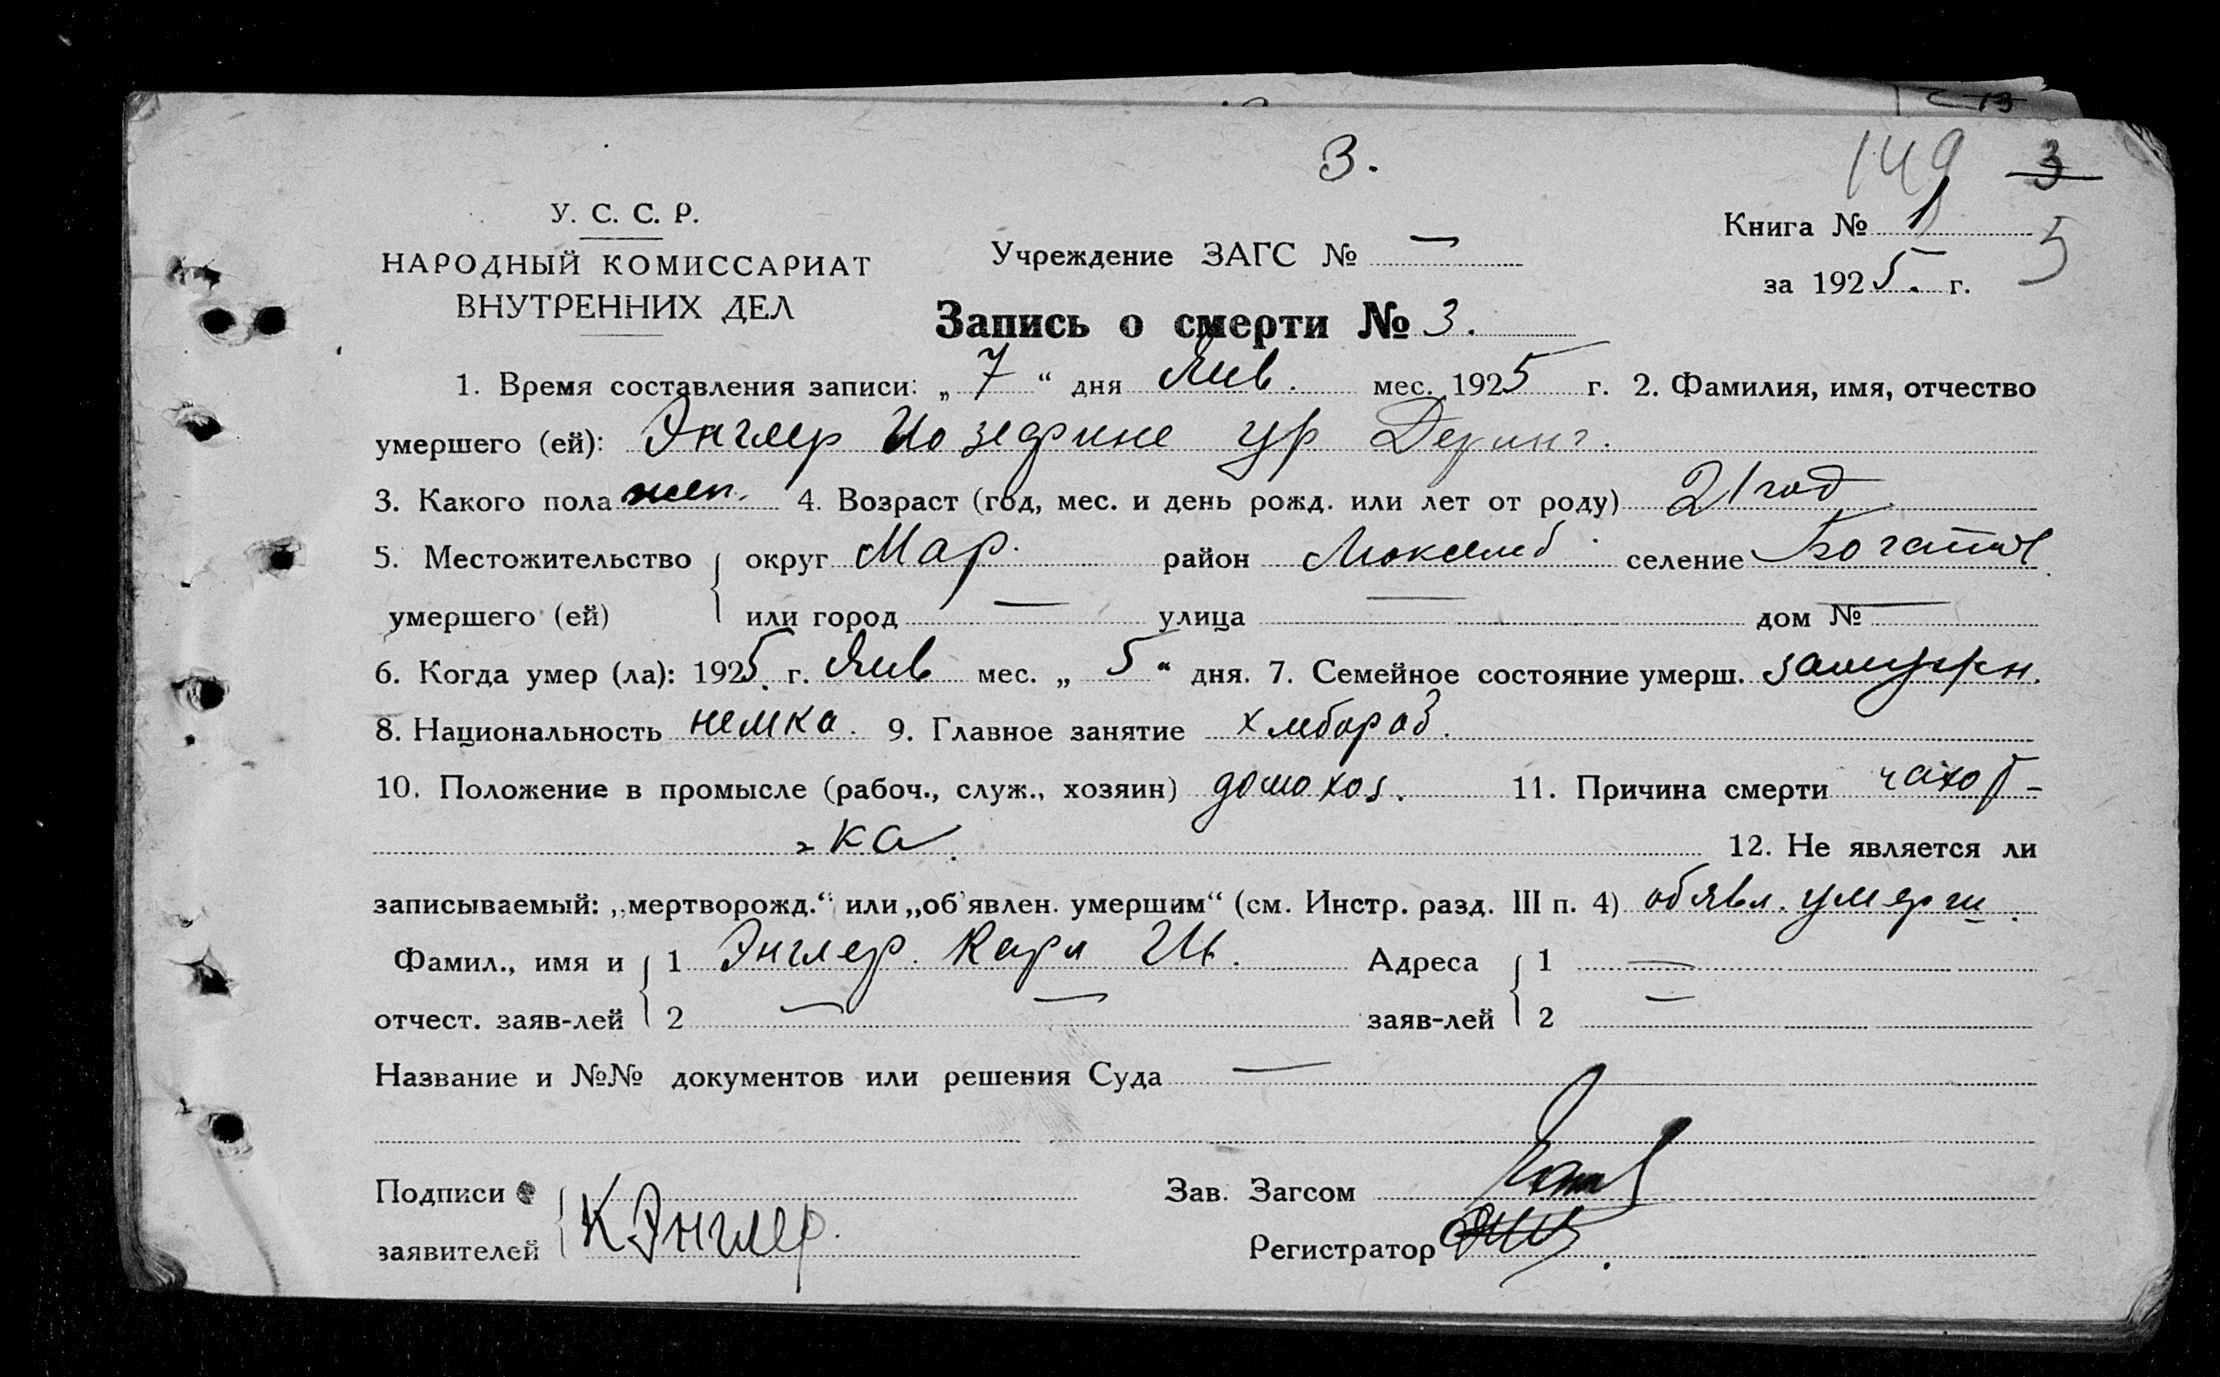 3.
149 3
У. С. С. Р.
НАРОДНЫЙ КОМИССАРИАТ
ВНУТРЕННИХ ДЕЛ
Учреждение ЗАГС № —
Книга № 1
5
за 1925. г.
Запись о смерти № 3.
1. Время составления записи: „ 7 “ дня Янв. мес. 1925 г. 2. Фамилия, имя, отчество
умершего (ей): Энглер Иозефине ур Деринг.
3. Какого пола жен. 4. Возраст (год, мес. и день рожд. или лет от роду) 21 год
5. Местожительство округ Мар. район Люксемб. селение Богатов
умершего (ей) или город — улица — дом № —
6. Когда умер (ла): 1925 г. Янв мес. „ 5 “ дня. 7. Семейное состояние умерш. замужн.
8. Национальность немка. 9. Главное занятие хлебороб.
10. Положение в промысле (рабоч., служ., хозяин) домохоз. 11. Причина смерти чахот-
ка. 12. Не является ли
записываемый: „мертворожд.“ или „об'явлен. умершим“ (см. Инстр. разд. III п. 4) обявл. умерш.
Фамил., имя и 1 Энглер. Карл Ив. Адреса 1 —
отчест. заяв-лей 2 — — заяв-лей 2 —
Название и №№ документов или решения Суда —
Подписи Зав. Загсом
заявителей К Энглер. Регистратор